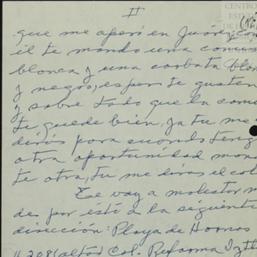 II
que me aperó en Juarez con
él te mando una camisa
blanca y una corbata blan
y negro, espero te gusten
y sobre todo que la cami
te quede bien, ya tu me
dirás para cuando tenga
otra oportunidad man
te otra, tu me diras el col
Te voy a molestar, m
des por esté a la siguiente
dirección: Playa de Hornos
# 208 (altos) Col. Reforma Izt